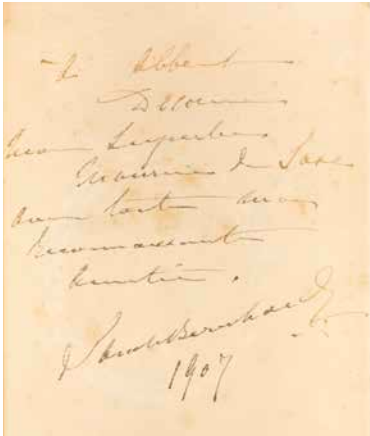 à Albert
Decoeur
mon superbe
Maurice de Saxe
avec toute ma
reconnaissante
amitié.
Sarah Bernhardt
1907